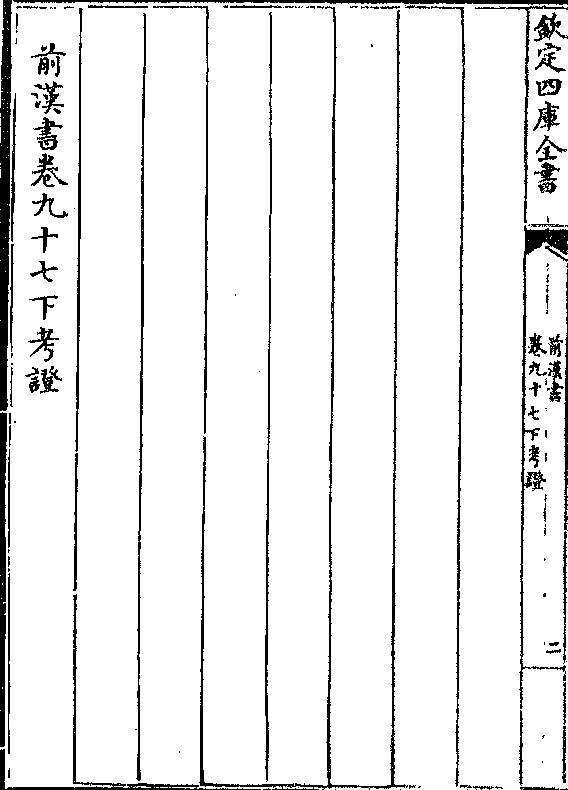 欽定四庫全書
前漢書
卷九十七下考證
二
前漢書卷九十七下考證